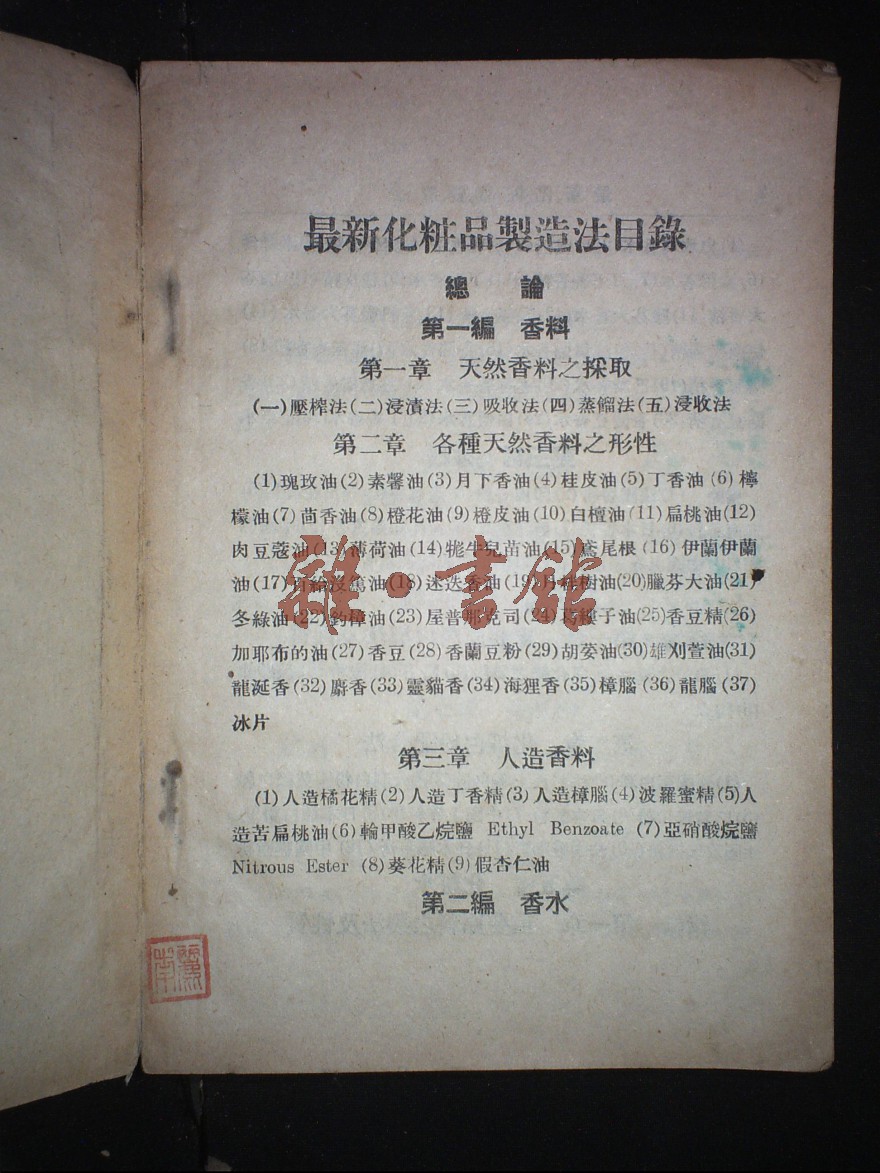 最新化粧品製造法目錄
總 論
第一編 香料
第一章 天然香料之採取
(一)壓榨法(二)浸漬法(三)吸收法(四)蒸餾法(五)浸收法
第二章 各種天然香料之形性
(1)瑰玫油(2)素馨油(3)月下香油(4)桂皮油(5)丁香油(6)檸
檬油(7)茴香油(8)橙花油(9)橙皮油(10)白檀油(11)扁桃油(12)
肉豆蔻油(13)薄荷油(14)牻牛兒苗油(15)鳶尾根(16)伊蘭伊蘭
油(17) 油(18)迷迭香油(19)月桂樹油(20)臘芬大油(21)
冬綠油(22)釣樟油(23)屋普那克司(24)葛縷子油(25)香豆精(26)
加耶布的油(27)香豆(28)香蘭豆粉(29)胡荽油(30)雄刈萱油(31)
龍涎香(32)麝香(33)靈貓香(34)海狸香(35)樟腦(36)龍腦(37)
冰片
第三章 人造香料
(1)人造橘花精(2)人造丁香精(3)人造樟腦(4)波羅蜜精(5)人
造苦扁桃油(6)輪甲酸乙烷鹽 Ethyl Benzoate (7)亞硝酸烷鹽
Nitrous Ester (8)葵花精(9)假杏仁油
第二編 香水
雜·書館